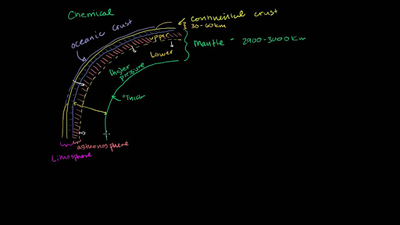 Chemical
continental crust
30-60 km
oceanic crust
upper
Lower
Mantle - 2900-3000 km
higher pressure
"Thick
asthenosphere
Lithosphere